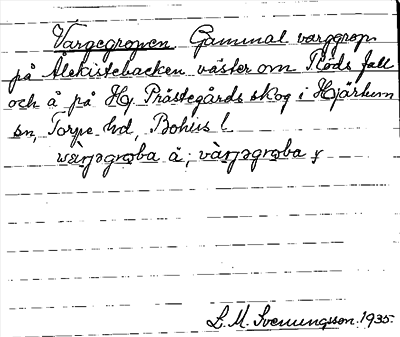 Vargegropen Gammal varggrop
på Ålekistebacken väster om Röds fall
och å på Hg Prästegårds skog i Hjärtum
sn, Torpe hd, Bohus l.
å, y
L. M. Svenungsson. 1935.